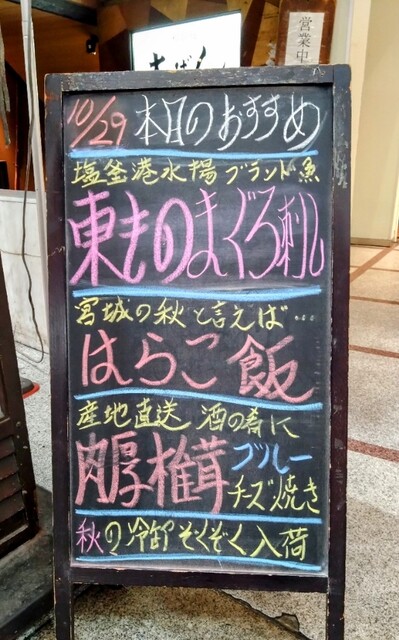 営業中
10/29 本日のおすすめ
塩釜港水揚ブランド魚
東ものまぐろ刺し
宮城の秋と言えば…
はらこ飯
産地直送 酒の肴に
肉厚椎茸
ブルー
チーズ焼き
秋の冷卸ぞくぞく入荷